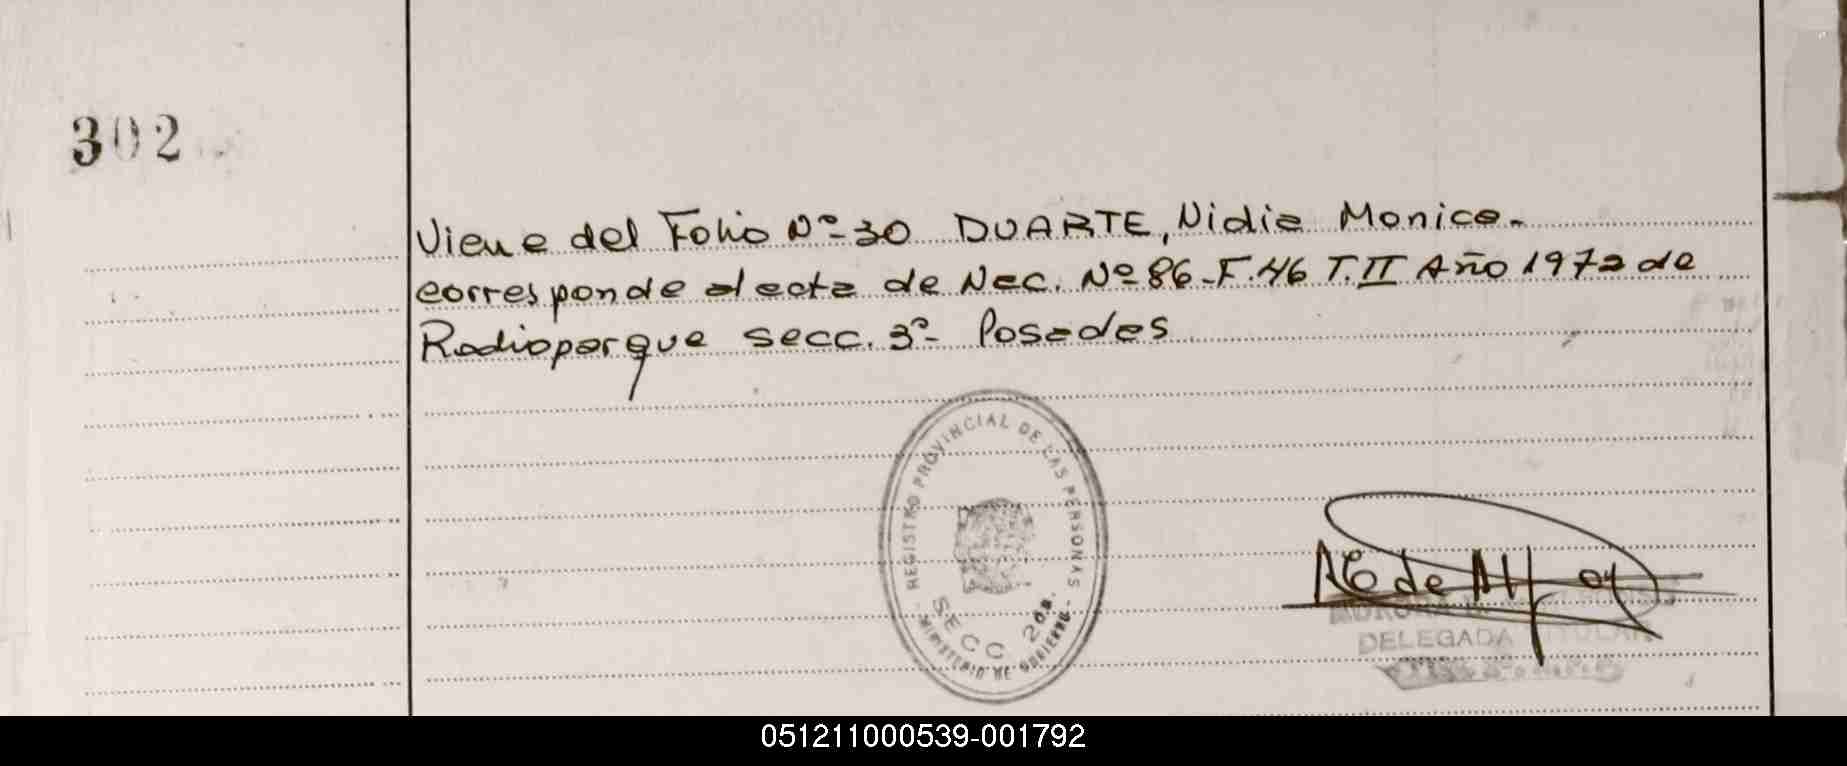 302
Viene del Folio Nº 30 DUARTE, Nidia Monica.
corresponde al acta de Nac. Nº 86-F.46 T.II Año 1972 de
Radioparque secc. 3ª Posadas
REGISTRO PROVINCIAL DE LAS PERSONAS
SECC 2da.
MINISTERIO DE GOBIERNO
DELEGADA TITULAR
051211000539-001792